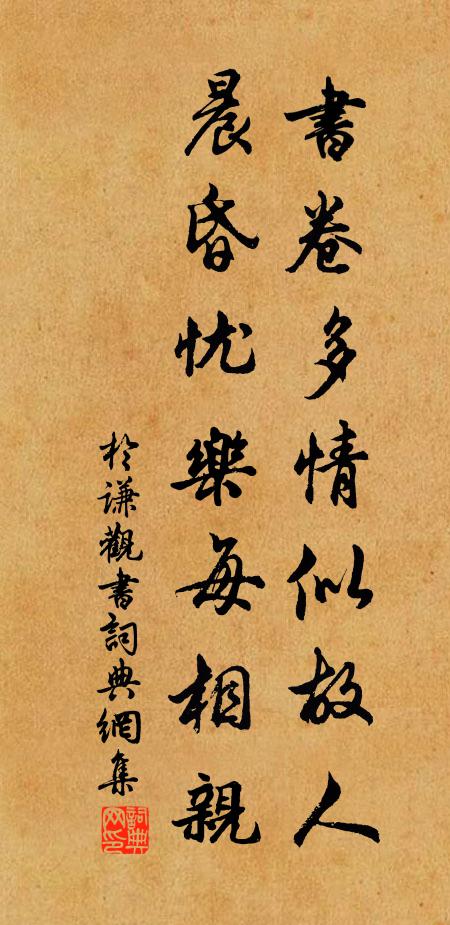 書卷多情似故人
晨昏忧樂每相親
於謙觀書詞典網集
詞典網印